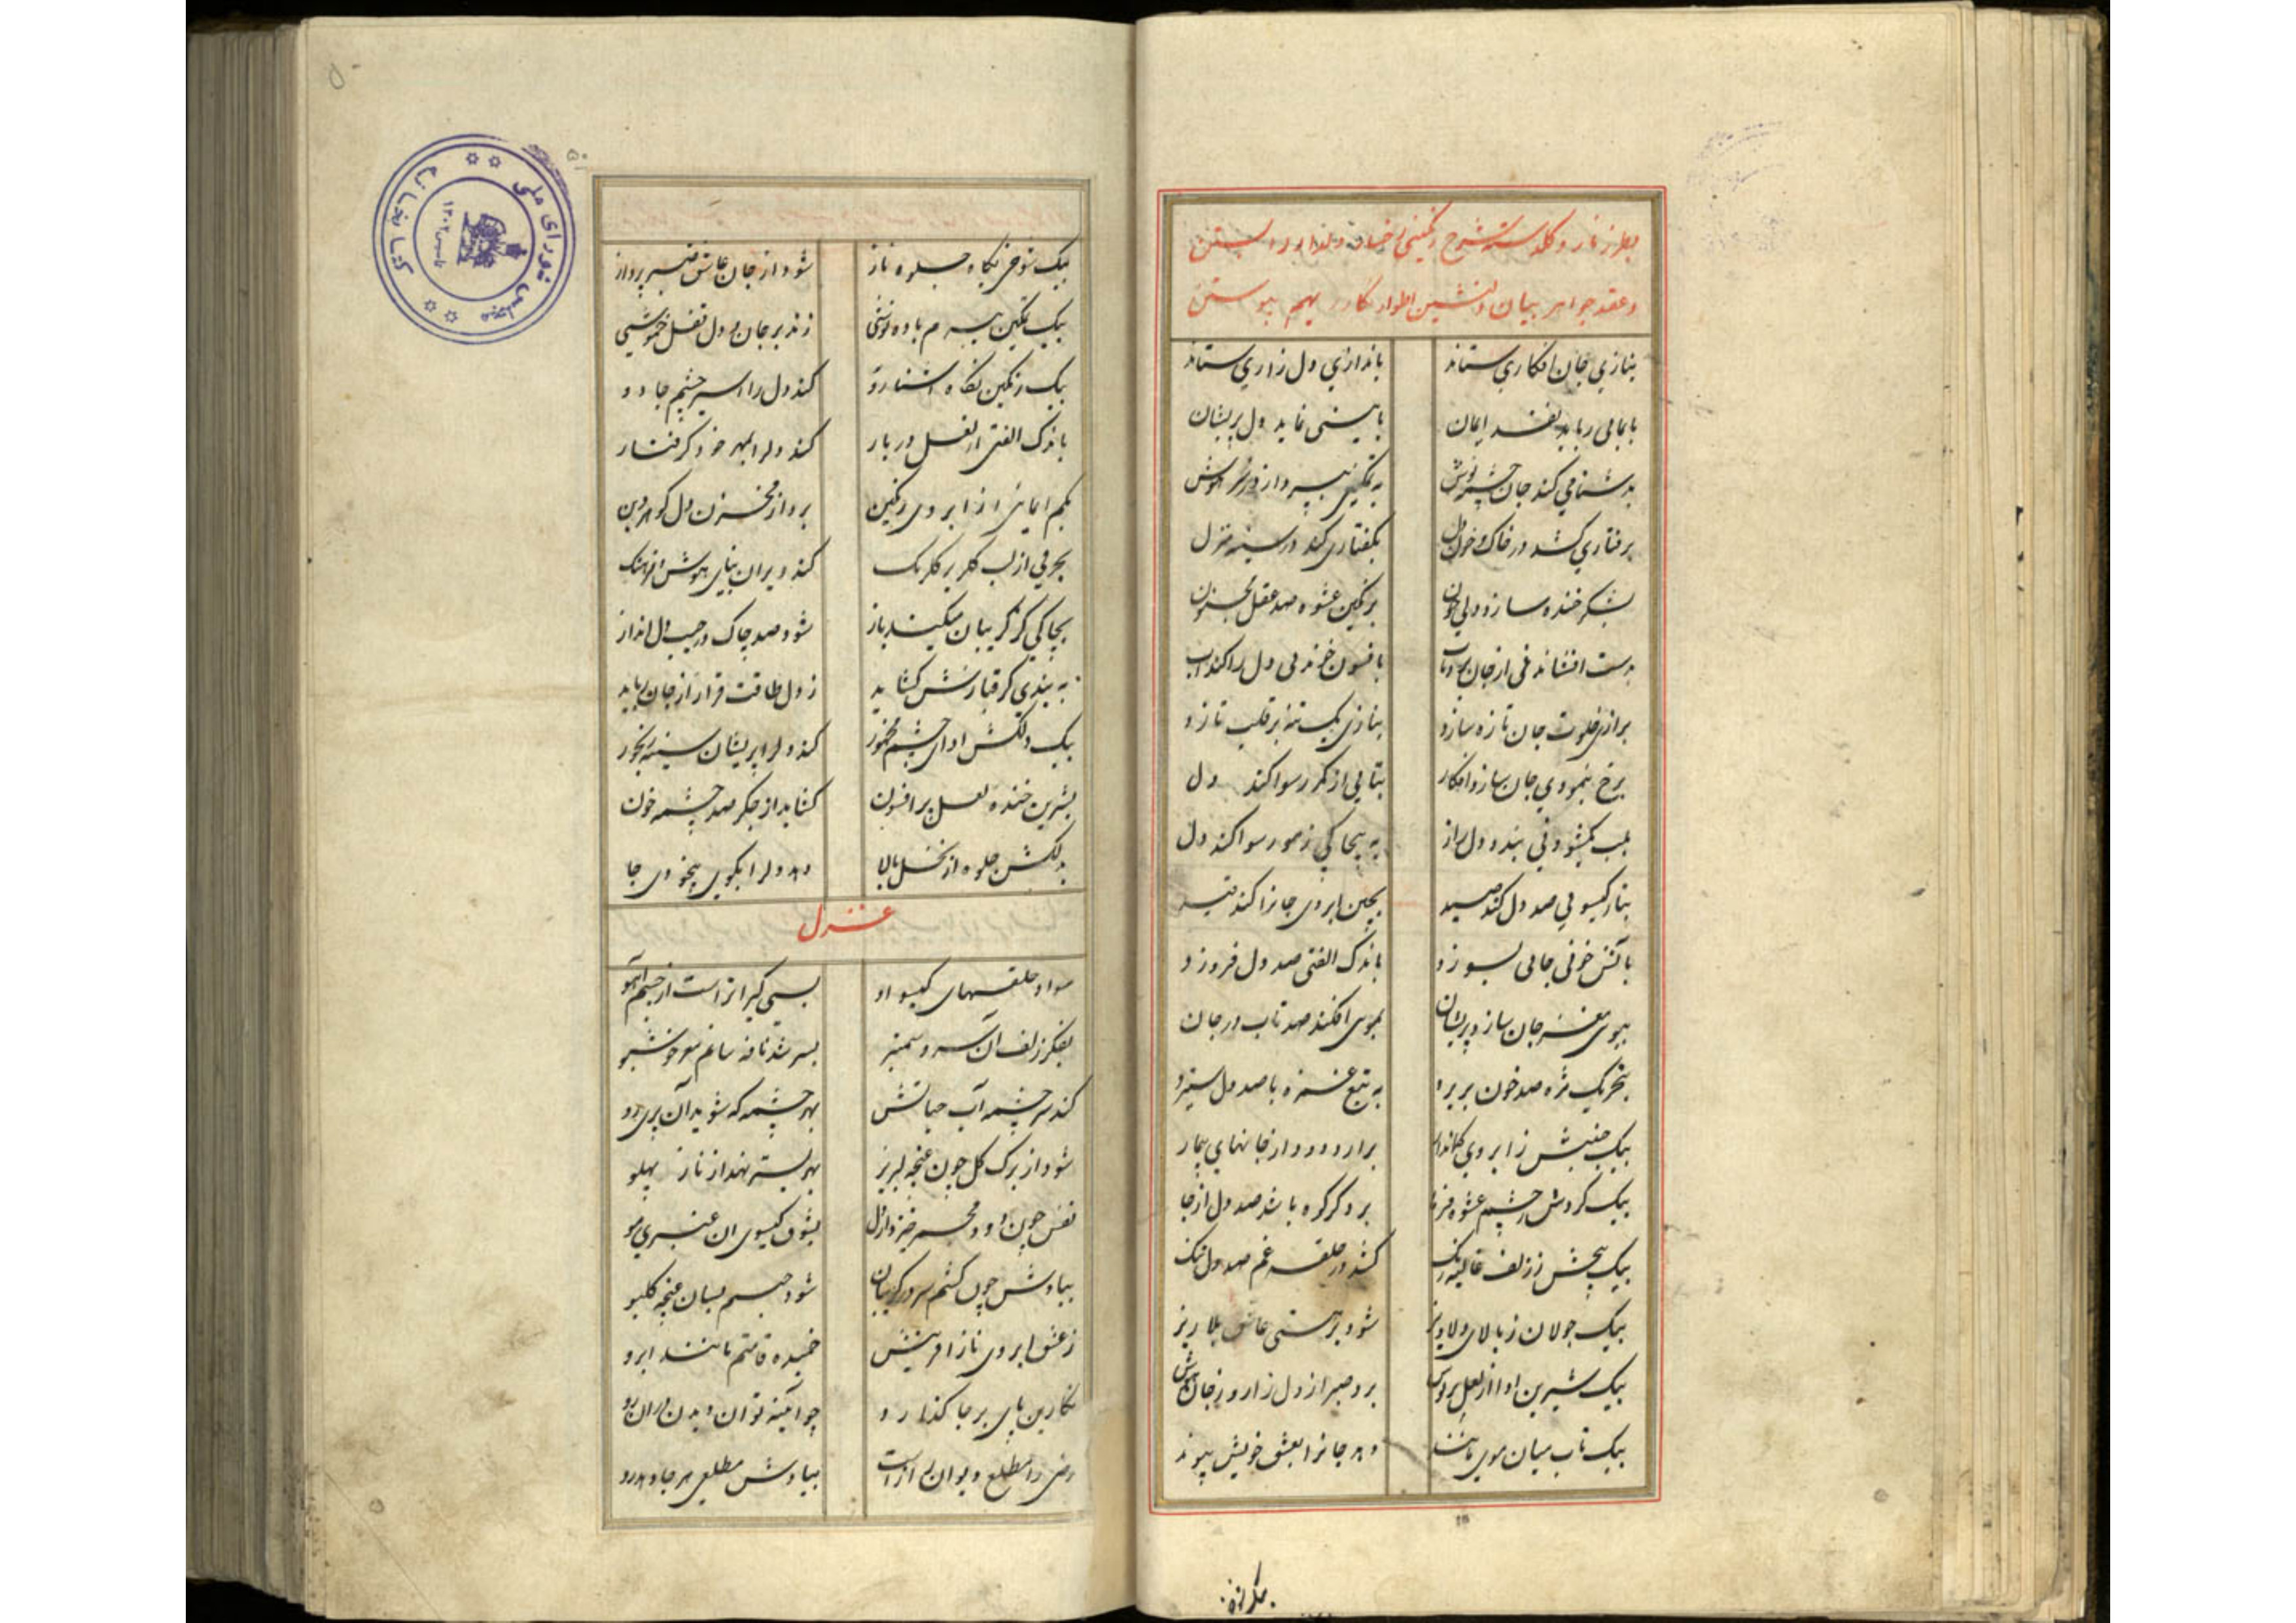 و عقد جواهر بیان دلنشین اطوار بهم پیوستن
بنازی جان افکاری ستاند باندازی دل زاری ستاند
بایمایی رباید نقد ایمان نماید دل پریشان
بدشنامی کند جان
برفتاری کشد در خاک و خون دل بکفتاری کند در سینه منزل
بشکر خنده سازد برنکین عشوه صد عقل
بدست افشاندنی از جان دل را کند
برازی خلوت جان تازه سازد بنازی یک تنه بر قلب تازد
برخ بنمودی جان سازد افکار بتابی از کمر رسوا کند دل
بلب نکشودنی بندد دل راز به پیچاکی ز مو رسوا کند دل
بتار کیسویی صد دل کند صید بچین ابروی جانرا کند قید
بآتش خوئی جانی بسوزد باندک الفتی صد دل فروزد
ببوی مغز جان سازد پریشان بموی افکند صد تاب در جان
بتحریک مژه صد خون بریزد به تیغ غمزه با صد دل ستیزد
بیک جنبش ز ابروی کماندار برارد دود از جانهای بیمار
بیک کردش ز چشم عشوه فرما برد کر کوه باشد صد دل از جا
بیک پیچش ز زلف غالیه رنک کشد در حلقه غم صد دل تنک
بیک جولان ز بالای دلاویز شود بر هستی عاشق بلا ریز
بیک شیرین ادا از لعل برد صبر از دل زار و ز جان هوش
بیک تاب میان موی مانند دهد جانرا بعشق خویش پیوند
۵۰
کتابخانه مجلس شورای ملی
بیک شوخی نکاه جلوه ناز شود از جان عاشق پرداز
بیک تمکین باده نوشی زند بر جان و دل قفل خموشی
بیک رنکین نکاه اشنا رو کند دل را اسیر چشم جادو
باندک الفتی از لعل دربار کند دلرا بمهر خود کرفتار
بکم ایمایی از ابروی رنکین برد از مخزن دل کوهر دین
بحرفی از لب کلبرک کند ویران بنای هوش و فرهنک
بچاکی کز کریبان میکند باز شود صد چاک در جیب دل انداز
به بندی کز قبا کشاید ز دل طاقت قرار از جان رباید
بیک دلکش ادای چشم مخمور کند دلرا پریشان سینه رنجور
بشیرین خنده لعل پر افسون کشاید از جکر صد چشمه خون
بدلکش جلوه از نخل بالا دهد دلرا بکوی بیخودی جا
غزل
سواد حلقهای کیسو او بسی کیراتر است از چشم آهو
بفکر زلف آن سرو سمنبر بسر شد نافه سانم خوشبو
کند سرچشمه آب حیاتش بهر چشمه که شوید آن پری رو
شود از برک کل چون غنچه لبریز بهر بستر نهد از ناز پهلو
نفس چون دود مجمر خیزد از دل بشوق کیسوی ان عنبرین مو
بیادش چون کشم سر در کریبان شود جسمم بسان غنچه کلبو
ز عشق ابروی ناز افرینش خمیده قامتم مانند ابرو
نکارین پای بر جا کذارد چو آیینه توان دیدن در ان رو
رضی را مطلع دیوان راز است بیادش مطلعی هر جا دهد رو